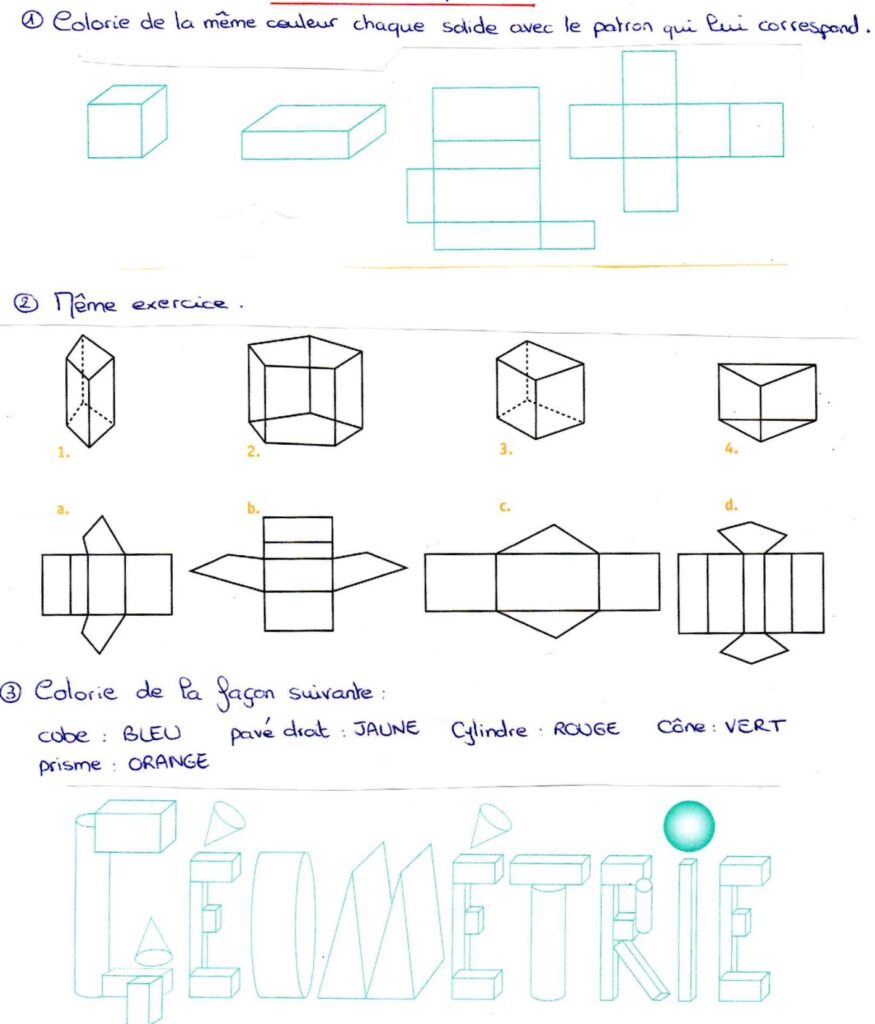 ① Colorie de la même couleur chaque solide avec le patron qui lui correspond.
② Même exercice.
1. 2. 3. 4.
a. b. c. d.
③ Colorie de la façon suivante :
cube : BLEU pavé droit : JAUNE Cylindre : ROUGE Cône : VERT
prisme : ORANGE
GÉOMÉTRIE